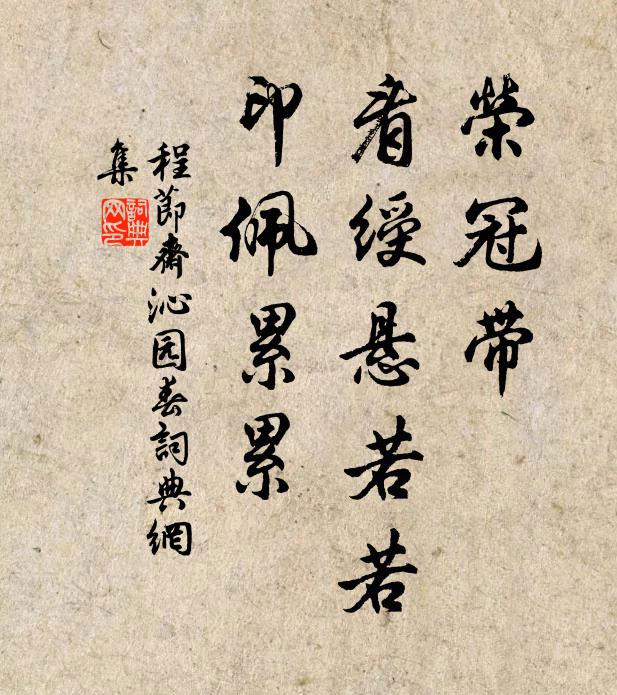 榮冠带
看綬悬若若
印佩累累
程節齋沁园春詞典網
集
詞典網印